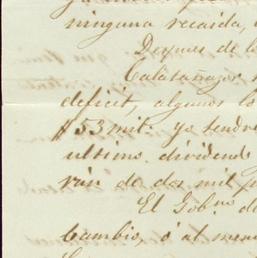 ninguna recaida,
Despues de l
Calatañazor
deficit, algunos lo
$53 mil. yo tendre
ultimo dividendo
rán de dos mil p
El Gobno de
Cambio, ó al men